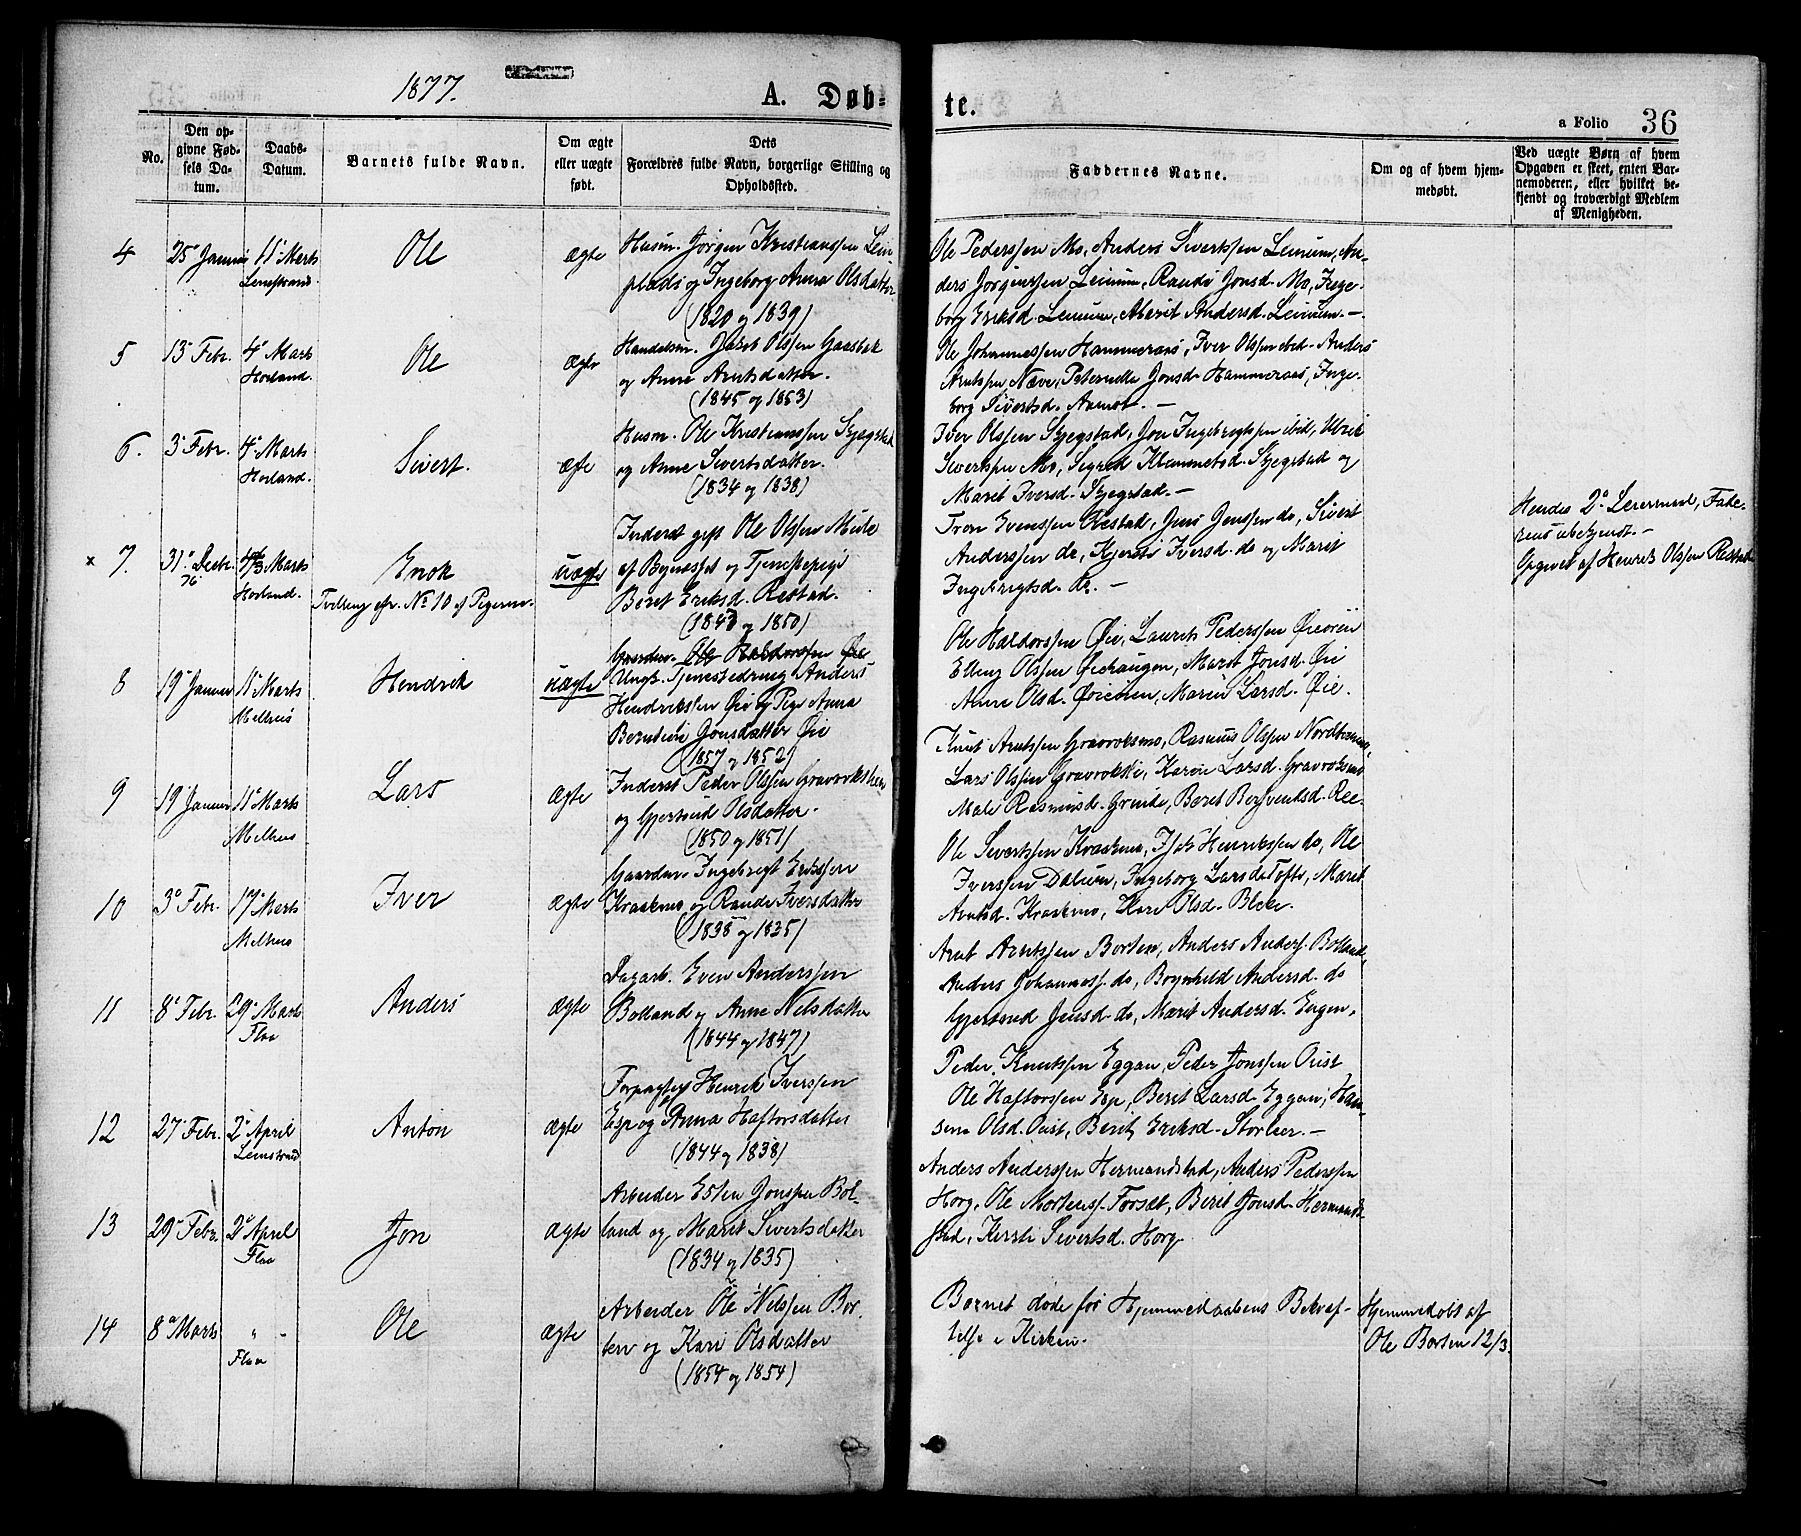 1877.
A. Døb-
te.
a Folio 36
No.
Den op-
givne Fød-
sels Da-
tum.
Daabs-
Datum.
Barnets fulde Navn.
Om ægte
eller uægte
født.
Dets
Forældres fulde Navn, borgerlige Stilling og
Opholdssted.
Faddernes Navne.
Om og af hvem hjem-
medøbt.
Ved uægte Børn af hvem
Opgaven er skeet, enten Bar-
nemoderen, eller hvilket be-
kjendt og troværdigt Medlem
af Menigheden.
4
25 Januar
11 Marts
Lenstrand
Ole
ægte
Husm. Jørgen Kristianssen Lein
plads og Ingeborg Anna Olsdatter
(1820 og 1839)
Ole Pederssen Mo, Anders Sivertssen Leinum, An-
ders Jørgenssen Leinum, Randi Jonsd. Mo, Inge-
borg Eriksd. Leinum, Marit Andersd. Leinum. –
5
13 Febr.
4 Marts
Horland.
Ole
ægte
Handelsm. Jakob Olssen Gaasbak
og Anne Arntsdatter.
(1845 og 1853)
Ole Johannessen Hammeraas, Iver Olssen ibid. Anders
Arntssen Næve, Peternille Jonsd. Hammeraas, Inge-
borg Sivertsd. Aamot. –
6.
3 Febr.
4 Marts
Horland.
Sivert.
ægte
Husm. Ole Kristianssen Skjegstad
og Anne Sivertsdatter.
(1834 og 1838)
Iver Olssen Skjegstad, Jon Ingebrigtssen ibid, Ulrik
Sivertssen Mo, Sigrid Klemmetsd. Skjegstad og
Marit Iversd. Skjegstad. –
× 7.
31 Decbr.
76
4/3 Marts
Horland.
Enok
Tvilling cfr. No 10 af Pigerne.
uægte
Inderst gift Ole Olssen Mule
af Bynæsset og Tjenestepige
Beret Eriksd. Restad.
(1847 og 1850)
Tron Evenssen Restad, Jens Jenssen do, Sivert
Anderssen do, Kjersti Iversd. do og Marit
Ingebrigtsd. do. –
Hendes 2 Leiermaal, Fade-
rens ubekjendt. –
Opgivet af Henrik Olssen Restad
8
19 Januar
11 Marts
Melhus
Hendrik
uægte
Gaardm. Ole Haldorssen Øie
Ungk. Tjenestedreng Anders
Hendrikssen Øie og Pige Anna
Berntine Jonsdatter Øie
(1857 og 1852)
Ole Haldorssen Øie, Laurits Pederssen Øieøren
Elling Olssen Øiehaugen, Marit Jonsd. Øie
Anne Olsd. Øiemoen, Maren Larsd. Øie.
9
19 Januar
11 Marts
Melhus
Lars
ægte
Inderst Peder Olssen Gravrokshau
og Gjertrud Olsdatter.
(1850 og 1851)
Knut Arntssen Gravroksmo, Rasmus Olssen
Lars Olssen Gravrokski, Karen Larsd. Gravroksmo
Male Rasmusd. Grinde, Beret Bersventsd. Ree.
10
3 Febr.
17 Marts
Melhus
Iver
ægte
Gaardm. Ingebrigt Erikssen
Kraakmo og Randi Iversdatter
(1838 og 1835)
Ole Sivertssen Kraakmo, Isak Henrikssen do, Ole
Iverssen Dalum, Ingeborg Larsd. Tofte, Marit
Arntsd. Kraakmo, Kari Olsd. Bleke.
11
8 Febr.
29 Marts
Flaa
Anders
ægte
Dagarb. Even Anderssen
Bolland og Anne Nilsdatter
(1844 og 1847)
Arnt Arntssen Borten, Anders Anders. Bolland,
Anders Johanness. do, Brynhild Andersd. do
Gjertrud Jensd. do, Marit Andersd. Engen.
12
27 Febr.
2 April
Leinstrand
Anton
ægte
Forpagter Henrik Iverssen
Esp og Anna Haftorsdatter
(1844 og 1838)
Peder Knutssen Eggan, Peder Jonssen Oust
Ole Haftorssen Esp, Beret Larsd. Eggan, Han-
sine Olsd. Oust, Berit Eriksd. Storler. –
13
29 Febr.
2 April
Flaa
Jon
ægte
Arbeider Esten Jonssen Bol-
land og Marit Sivertsdatter
(1834 og 1835)
Anders Anderssen Hermandstad, Anders Pederssen
Horg, Ole Mortenss. Forsæt, Berit Jonsd. Hermand-
stad, Kersti Sivertsd. Horg.
14
8 Marts
" -
Flaa
Ole
ægte
Arbeider Ole Nilssen Bor-
ten og Kari Olsdatter
(1854 og 1854)
Barnet døde før Hjemmedaabens Bekræf-
telse i Kirken.
Hjemmedøbt af
Ole Borten 12/3.